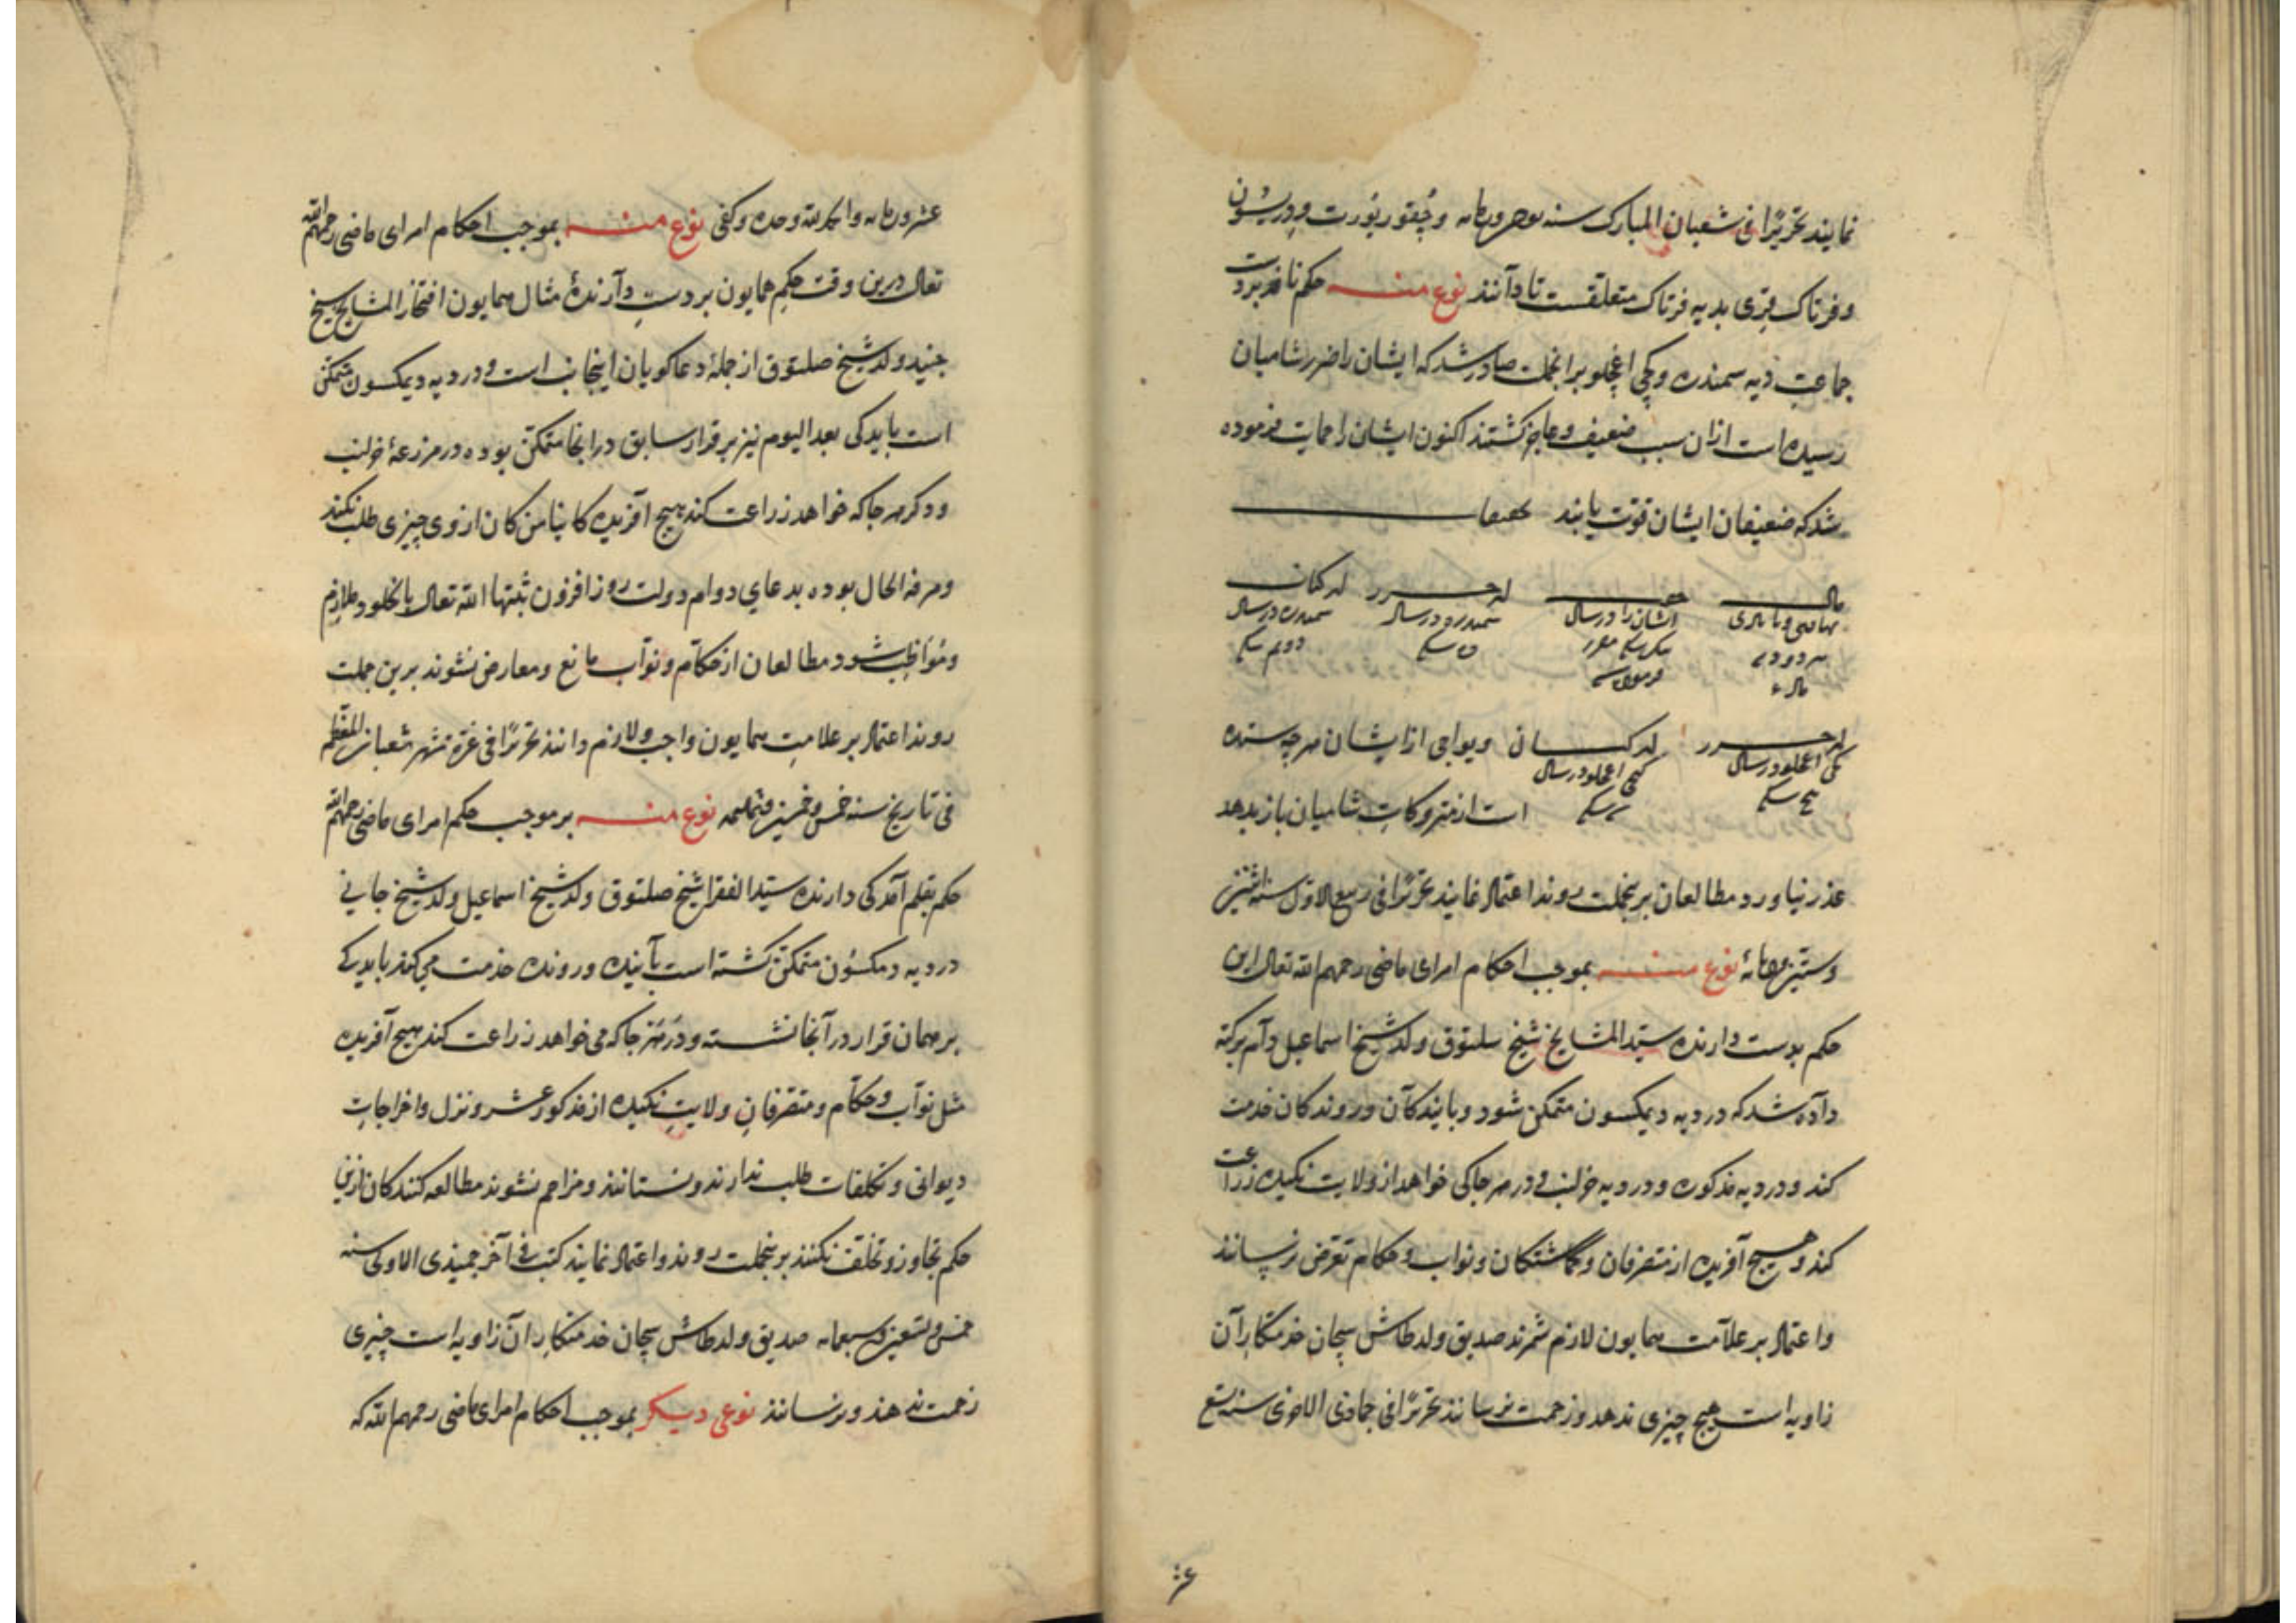 نمایند تحریرًا فی شعبان المبارک سنه وچُقور یُورت و دریسُون
وفرتاک قِرَی بدیه فرتاک متعلقست تا دانند نوع منه حکم نافذ بردست
جماعت دیه سمندره وکجی اغچلو برانجملت صادر شد که ایشان را ضرر شامیان
رسیده است ازان سبب ضعیف وعاجز کشتند اکنون ایشان را حمایت فرموده
شد که ضعیفان ایشان قوّت یابند
مال
ایشان را در سال
سمندره در سال
سمندره در سال
ویواجی از ایشان هرچه ستده
اغچلو در سال
کجی اغچلو در سال
است از متروکات شامیان باز بدهد
عذر نیاورد مطالعان برینجملت روند اعتماد نمایند تحریرًا فی ربیع الاوّل سنه اثنین
وستین نوع منه بموجب احکام امرای ماضی رحمهم الله تعالی این
حکم بدست دارنده سیّد المشایخ شیخ سلتوق ولد شیخ اسماعیل دام برکته
داده شد که در دیه دیمکسون متمکن شود وبایندکان وروندکان خدمت
کند ودر دیه مذکوره ودر دیه خرلنب ودر هر جاکی خواهد از ولایت نکیده زراعت
کند وهیچ آفریده از متصرفان وکماشتکان ونواب وحکام تعرّض نرسانند
واعتماد بر علامت همایون لازم شمرند صدیق ولد طاش سیحان خدمتکار آن
زاویه است هیچ چیزی ندهد وزحمت نرسانند تحریرًا فی جمادی الاخری سنه تسع
عشر
عشر والحمد لله وحده وکفی نوع منه بموجب احکام امرای ماضی رحمهم الله
تعالی درین وقت حکم همایون بردست دارندهٔ مثال همایون افتخار المشایخ شیخ
جنید ولد شیخ صلتوق از جملهٔ دعاکویان اینجانب است ودر دیه دیمکسون متمکن
است بایدکی بعد الیوم نیز بر قرار سابق درانجا متمکن بوده در مزرعهٔ خرلنب
ودکر هر جاکه خواهد زراعت کند هیچ آفریده کاینا من کان از وی چیزی طلب نکنند
ومرفه الحال بوده بدعای دوام دولت روز افزون ثبتها الله تعالی بالخلود ملازم
ومُواظِب شود مطالعان از حکّام ونوّاب مانع ومعارض نشوند برین جملت
روند اعتماد بر علامتِ همایون واجب ولازم دانند تحریرًا فی غرّة شهر شعبان المعظم
فی تاریخ سنه خمس وخمسین وثمانمه نوع منه بر موجب حکم امرای ماضی رحمهم الله
حکم بقلم آمد کی دارنده سیّد الفقرا شیخ صلتوق ولد شیخ اسماعیل ولد شیخ جابی
در دیه دمکسُون متمکن کشته است بآینده ورونده خدمت می کند باید کی
بر همان قرار در آنجا نشسته ودر هر جاکه می خواهد زراعت کند هیچ آفریده
مثل نوّاب وحکّام ومتصرفان ولایت نکیده از مذکور عشر ونزل واخراجات
دیوانی وتکلفات طلب ندارند ونستانند ومزاحم نشوند مطالعه کنندکان ازین
حکم تجاوز وتخلّف نکنند برینجملت روند واعتماد نمایند کتب فی آخر جمیذی الاولی سنه
خمس وتسعین وسبعمایه صدیق ولد طاش سیحان خدمتکار آن زاویه است چیزی
زحمت ندهند ونرسانند نوعی دیکر بموجب احکام امرای ماضی رحمهم الله که